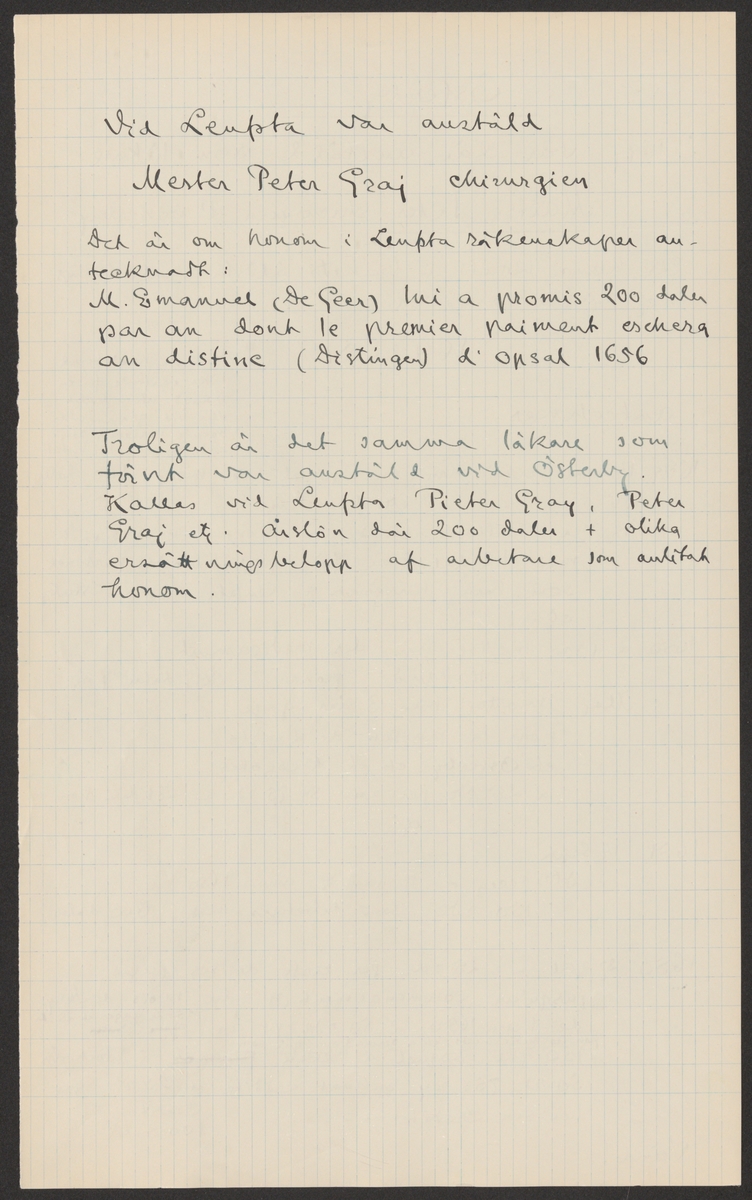 Vid Leufsta var anstäld
Mester Peter Graj chirurgien
Det är om honom i Leufsta räkenskaper an-
tecknadt:
M. Emanuel (De Geer) lui a promis 200 daler
par an dont le premier paiment eschera
an distinc (Distingen) d'opsal 1656
Troligen är det samma läkare som
förut var anstäld vid Österby.
Kallas vid Leufsta Pieter Gray, Peter
Graj etc. årslön där 200 daler + olika
ersättningsbelopp af arbetare som anlitat
honom.